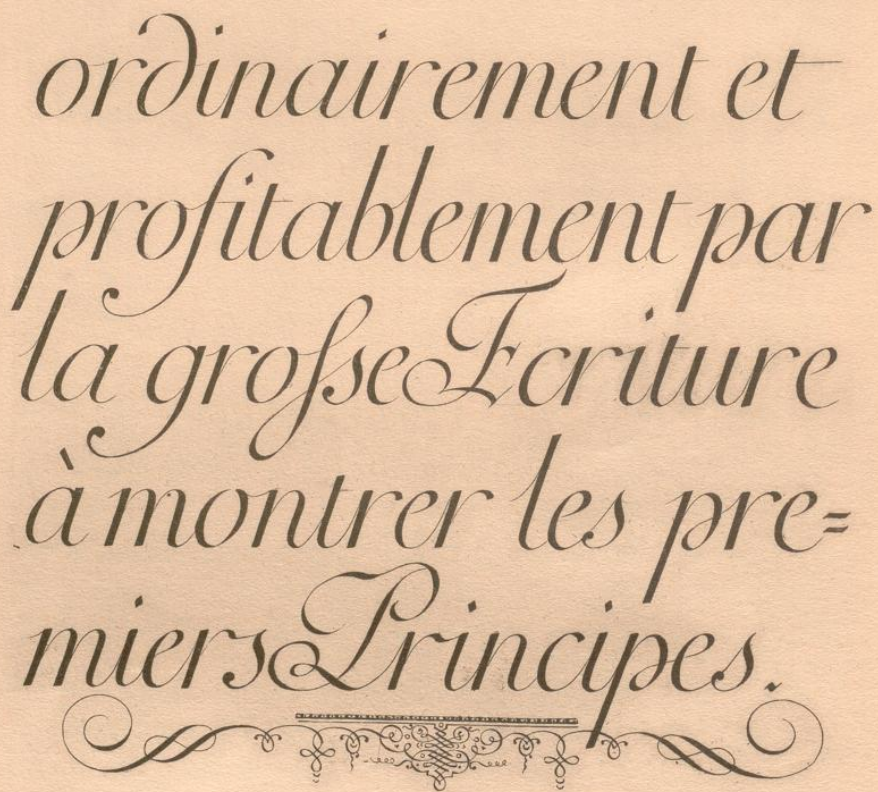 ordinairement et
profitablement par
la groſse Ecriture
à montrer les pre=
miers Principes.